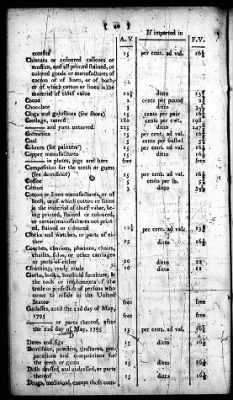 ( 20 )
If imported in
A. V. F. V.
Chintzes or coloured calicoes or
muslins, and all printed, stained, or
coloured goods or manufactures of
cotton or of linen, or of both,
or of which cotton or linen is the
material of chief value 12½ ditto 13¾
Cocoa 2 cents per pound
Chocolate 3 ditto
Clogs and goloshoes (see shoes) 15 cents per pair
Cordage, tarred 180 cents per cwt. 198
—— and yarn untarred 225 ditto
Cosmetics 15 per cent. ad val. 16½
Coal 5 cents per bushel
Colours (see painters) 15 per cent. ad val. 16½
Copper manufactures 15 ditto 16½
—— in plates, pigs and bars free
Composition for the teeth or gums
(see dentifrice) 15 per cent. ad val. 16½
Coffee 5 cents per lb.
Cotton 3 ditto
Cotton or linen manufactures, or of
both, or of which cotton or linen
is the material of chief value, being
printed, stained or coloured,
or cotton manufactures not printed,
ed, stained or coloured 12½ per cent. ad val. 13¾
Clocks and watches, or parts of either
ther 15 ditto 16½
Coaches, chariots, phaetons, chairs,
chaises, solos, or other carriages
or parts of either 20 ditto 22
Cloathing, ready made 10 ditto 11
Cloths, books, houshold furniture, &
the tools or implements of the
trade or profession of persons who
come to reside in the United
States free free
Cutlasses, until the 22d day of May,
1795 free free
—— or parts thereof, after
the 22d day of May, 1795 15 per cent. ad val. 16½
Dates and figs 15 ditto 16½
Dentifrice, powders, tinctures, preparations
and compositions for
the teeth or gums 15 ditto 16½
Dolls dressed and undressed, or parts
thereof 15 ditto 16½
Drugs, medicinal, except those com-